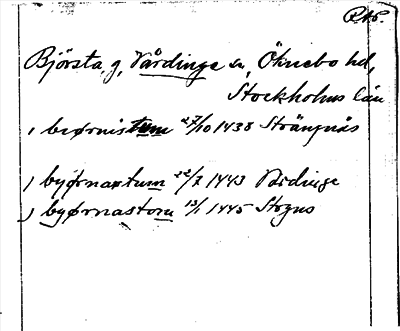 RAp.
Björsta, g, Vårdinge sn, Öknebo hd,
Stockholms län
, beørnistum 27/10 1438 Strängnäs
, byørnaxtum 22/7 1443 Vårdinge
, byørnastom 13/1 1445 Stregns